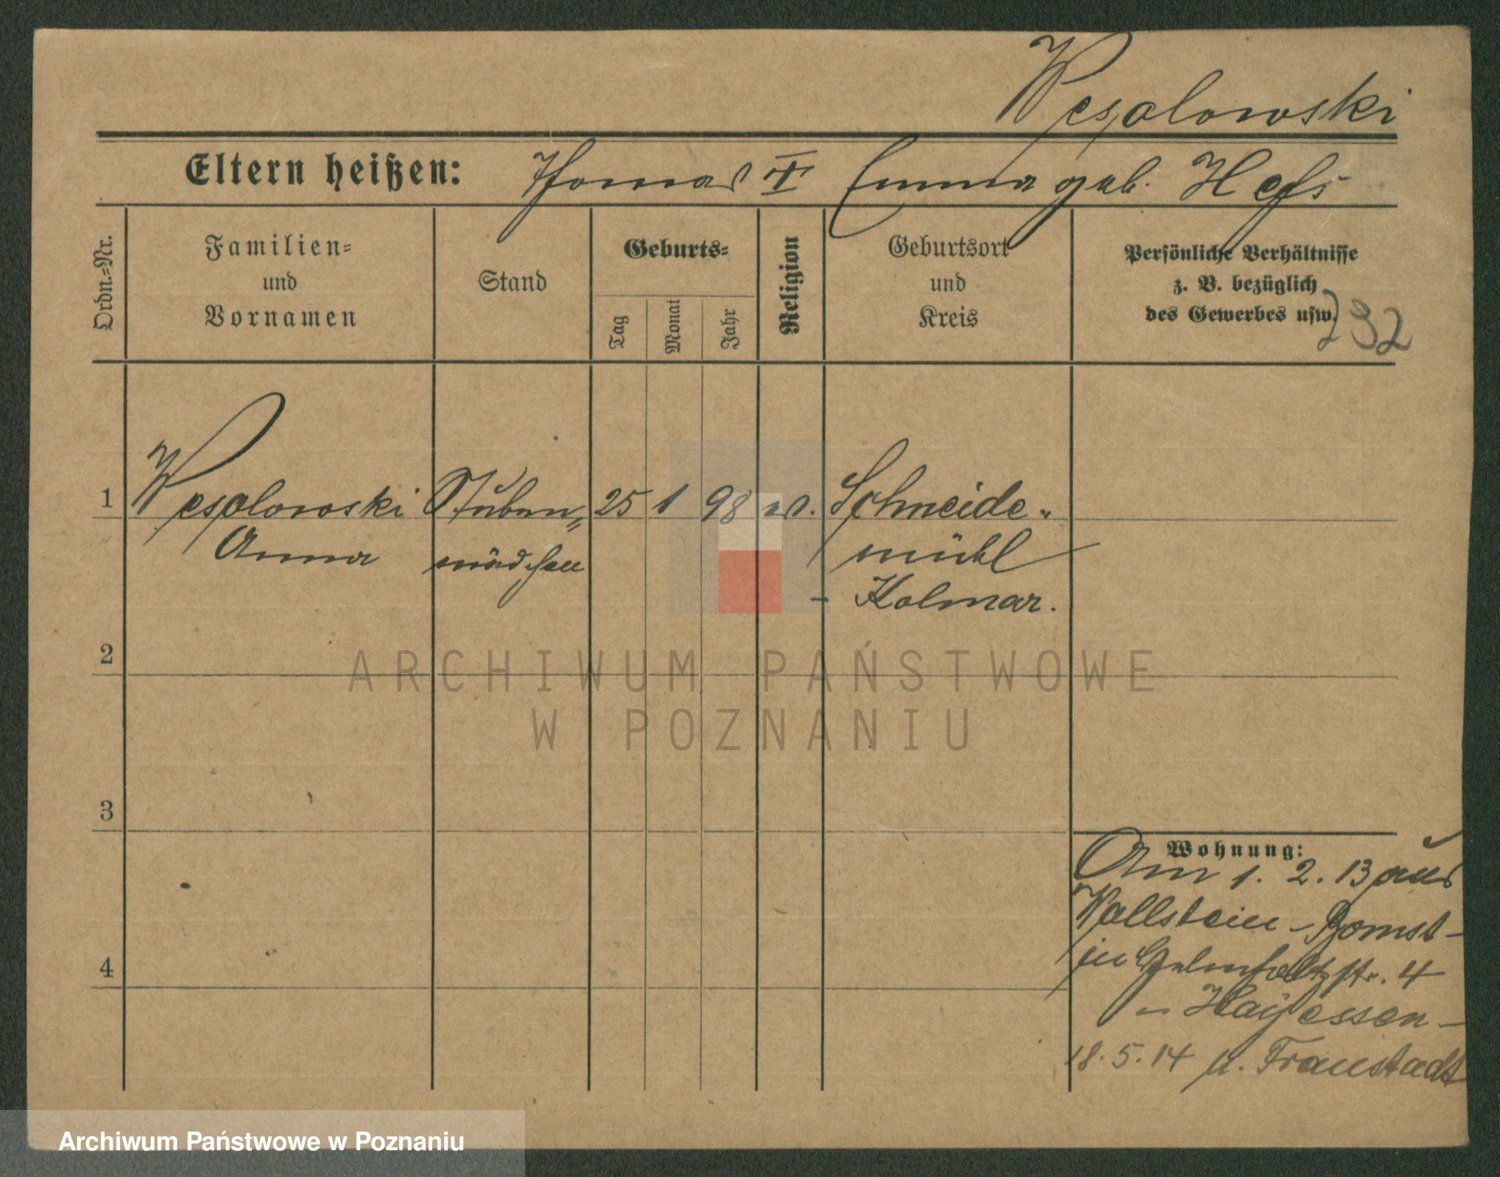 Wesolowski
Eltern heißen: Thomas † Emma geb. Hess
Ordn.-Nr.
Familien- und Vornamen
Stand
Geburts-
Tag
Monat
Jahr
Religion
Geburtsort und Kreis
Persönliche Verhältnisse
z. B. bezüglich
des Gewerbes usw.
792
1 Wesolowski Stuben 25 1 98 ev. Schneide-
Anna mädchen mühl
- Kolmar.
2
3
4
Wohnung:
Am 1. 2. 13 aus
Wollstein - Bomst -
in str. 4
18. 5. 14 n. Fraustadt
ARCHIWUM PAŃSTWOWE
W POZNANIU
Archiwum Państwowe w Poznaniu